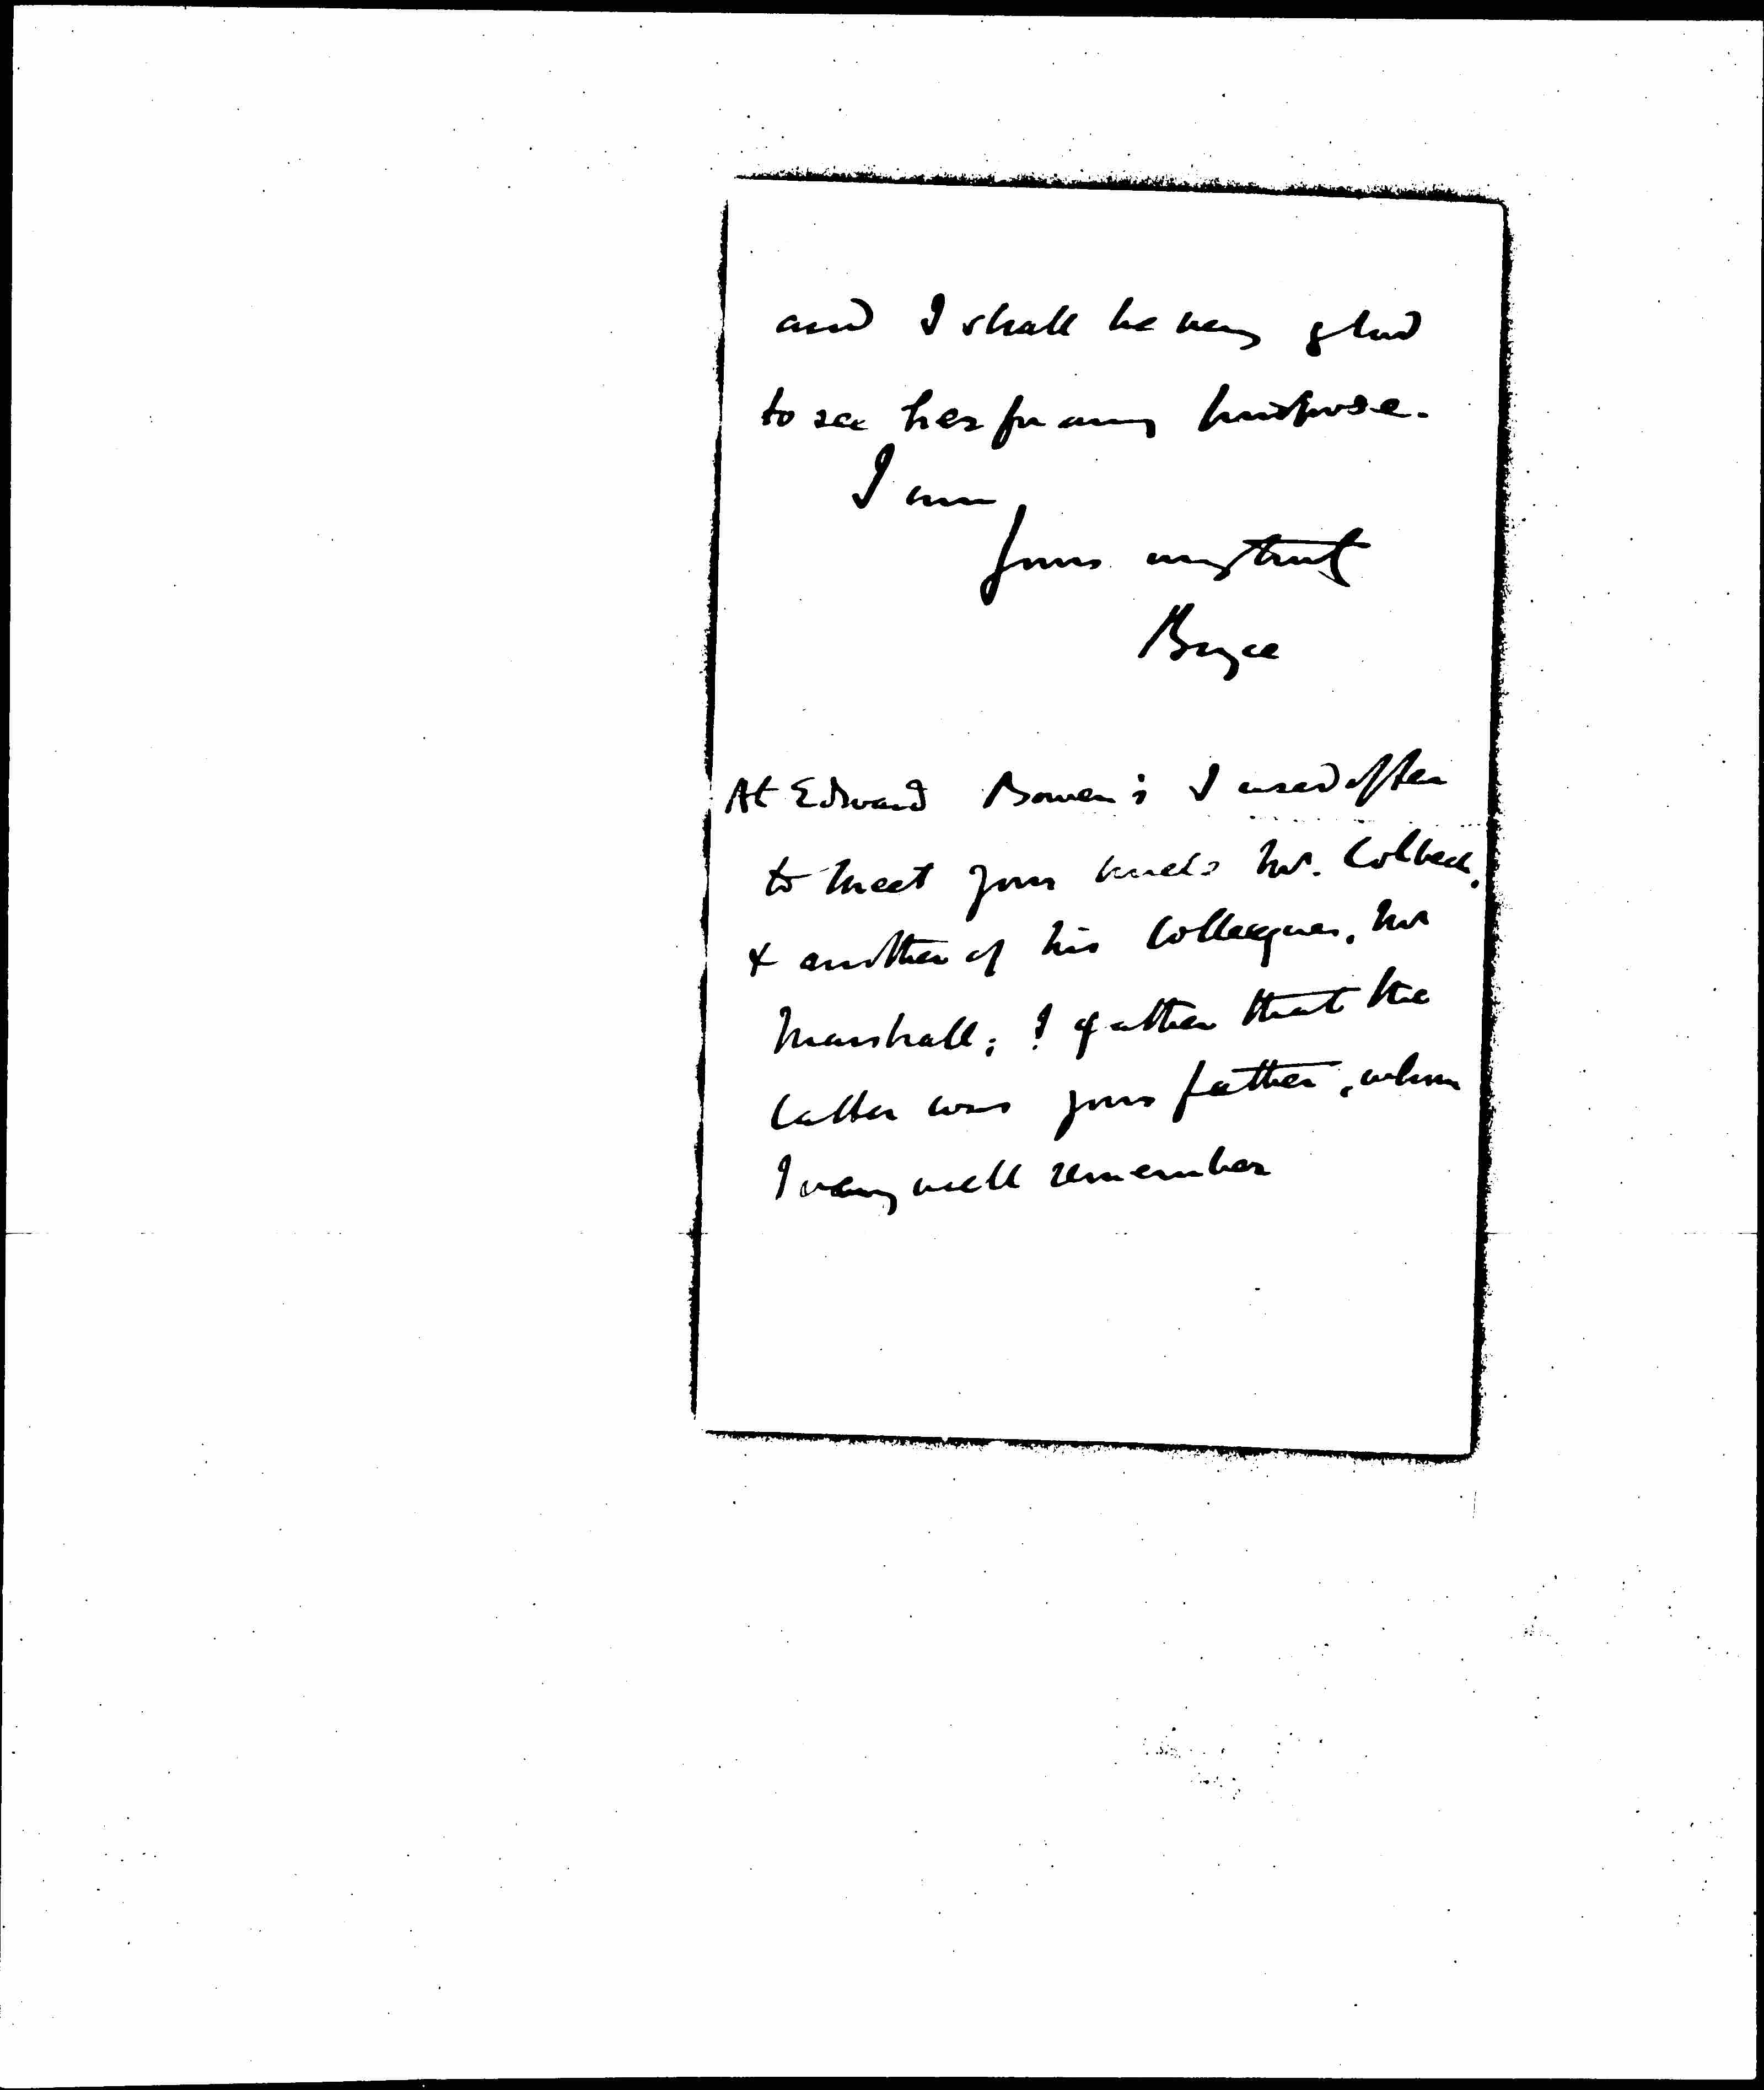 and I shall be very glad
to see her for any purpose.
I am
Yours very truly
Bryce
At Edward Bowen's I used often
to meet your uncle Mr. Colbeck,
& another of his colleagues, Mr
Marshall; I gather that the
latter was your father, whom
I very well remember